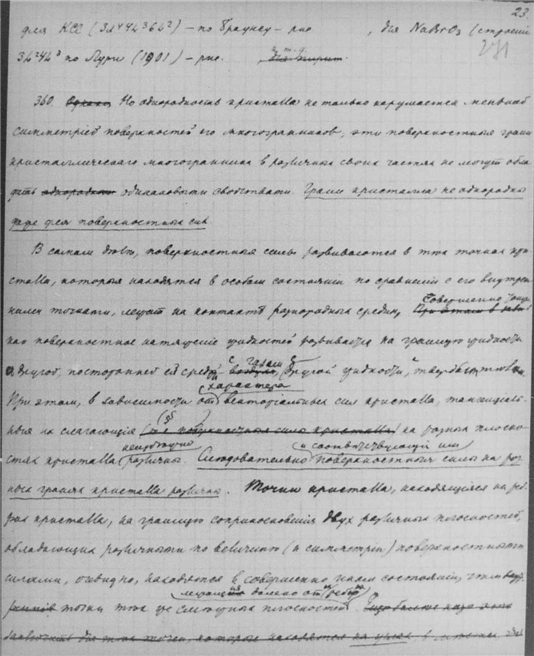 23.
для KCl (3L⁴4L³6L²) – по Браунсу – рис , для NaBrO₃ (строение
3L²4L³ по Лури (1901) – рис. и т.д.
360. Но однородность кристалла не только нарушается меньшей
симметрией поверхностей его многогранников, эти поверхностные грани
кристаллического многогранника в различных своих частях не могут обла-
дать одинаковыми свойствами. Грани кристалла не однородны
даже для поверхностных сил
В самом деле, поверхностные силы развиваются в тех точках кри-
сталла, которые находятся в особом состоянии по сравнению с его внутрен-
ними точками, лежат на контакте разнородных средин, Совершенно
как поверхностное натяжение жидкостей развивается на границе жидкости
и другой посторонней ей среды с газом другой жидкости, твердым телом
При этом, в зависимости от характера векториальных сил кристалла, тангенциаль-
ные их слагающие на разных плоско-
стях кристалла различны. Следовательно и соответствующие им поверхностные силы на раз-
ных гранях кристалла различны. Точки кристалла, находящиеся на реб-
рах кристалла, на границе соприкосновения двух различных плоскостей,
обладающих различными по величине (и симметрии) поверхностными
силами, очевидно, находятся в совершенно ином состоянии, чем
точки тех же смежных плоскостей лежащие далеко от ребер.